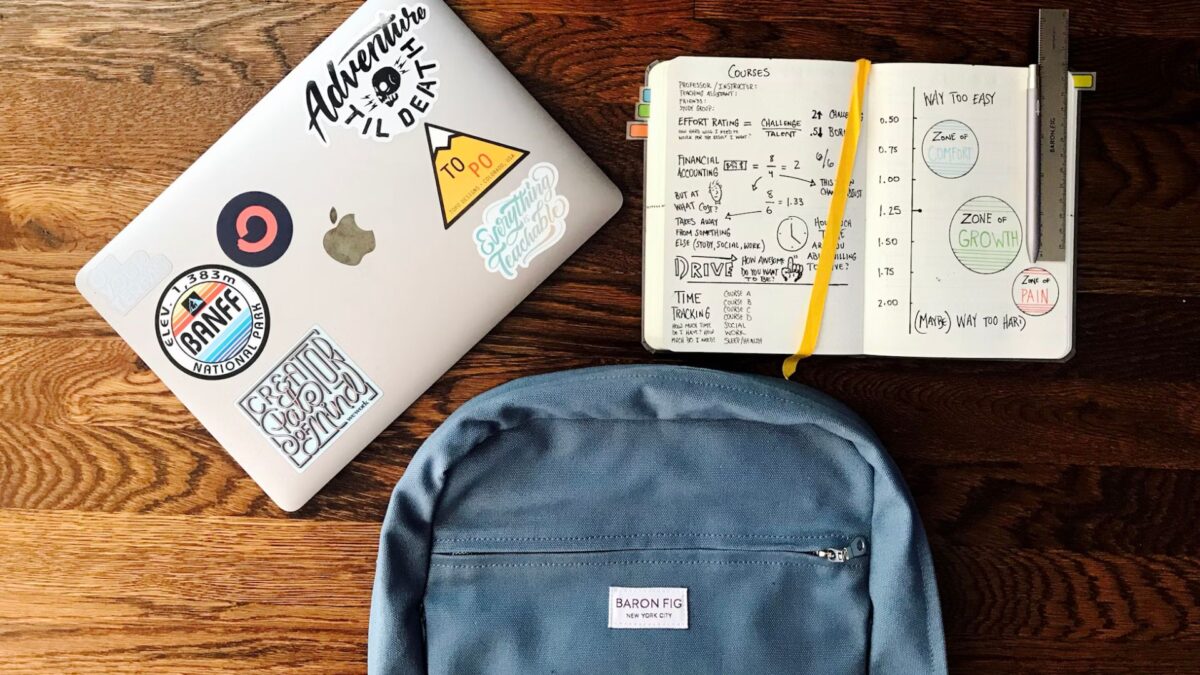 Adventure
'TIL DEATH
TOPO
TOPO DESIGNS · COLORADO, USA
Everything
is
Teachable
ELEV. 1,383m
BANFF
NATIONAL PARK
CREATOR
State
OF Mind
COURSES
PROFESSOR / INSTRUCTOR:
TEACHING ASSISTANT:
FRIENDS:
STUDY GROUP:
EFFORT RATING = CHALLENGE
TALENT
HOW HARD WILL I NEED TO
WORK FOR THE RESULT I WANT
2↑
.5↓
FINANCIAL
ACCOUNTING
8
4
= 2
6/6
BUT AT
WHAT COST?
8
6
= 1.33
TAKES AWAY
FROM SOMETHING
ELSE (STUDY, SOCIAL, WORK)
DRIVE
HOW AWESOME
DO YOU WANT
TO BE?
TIME
TRACKING
HOW MUCH TIME
DO I HAVE? HOW
MUCH DO I NEED?
COURSE A
COURSE B
COURSE C
COURSE D
SOCIAL
WORK
WAY TOO EASY
0.50
0.75
1.00
1.25
1.50
1.75
2.00
ZONE OF
COMFORT
ZONE OF
GROWTH
ZONE OF
PAIN
(MAYBE) WAY TOO HARD
BARON FIG
BARON FIG
NEW YORK CITY